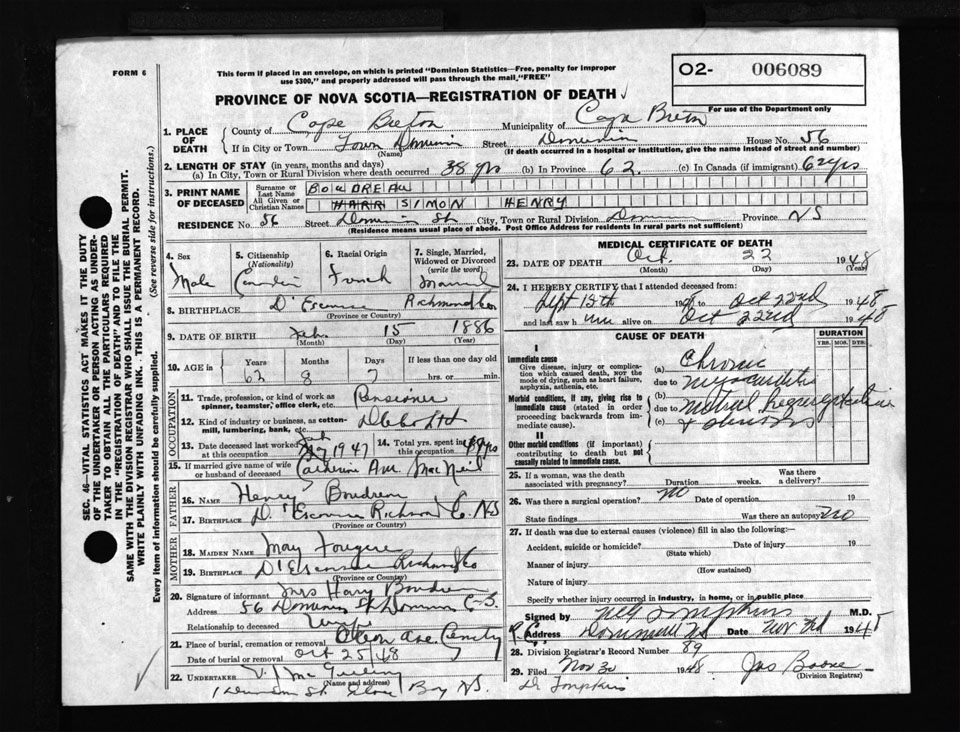 FORM 6
This form if placed in an envelope, on which is printed "Dominion Statistics—Free, penalty for improper
use $300," and properly addressed will pass through the mail, "FREE"
O2- 006089
For use of the Department only
PROVINCE OF NOVA SCOTIA—REGISTRATION OF DEATH
1. PLACE OF DEATH
County of Cape Breton Municipality of Cape Breton
If in City or Town Town Dominion Street Dominion House No. 56
(Name) (If death occurred in a hospital or institution, give the name instead of street and number)
2. LENGTH OF STAY (in years, months and days)
(a) In City, Town or Rural Division where death occurred 38 yrs (b) In Province 62 (c) In Canada (if immigrant) 62 yrs
3. PRINT NAME OF DECEASED
Surname or Last Name BOUDREAU
All Given or Christian Names HARR SIMON HENRY
RESIDENCE No. 56 Street Dominion St City, Town or Rural Division Dominion Province NS
(Residence means usual place of abode. Post Office Address for residents in rural parts not sufficient)
4. Sex Male
5. Citizenship (Nationality) Canadian
6. Racial Origin French
7. Single, Married, Widowed or Divorced (write the word) Married
8. BIRTHPLACE D'Escousse Richmond Co
(Province or Country)
9. DATE OF BIRTH Feb 15 1886
(Month) (Day) (Year)
10. AGE in Years 62 Months 8 Days 7 If less than one day old hrs. or min.
OCCUPATION
11. Trade, profession, or kind of work as spinner, teamster, office clerk, etc. Pensioner
12. Kind of industry or business, as cotton-mill, lumbering, bank, etc.
13. Date deceased last worked at this occupation 1947
14. Total yrs. spent in this occupation yrs
15. If married give name of wife or husband of deceased Catherine Ann MacNeil
FATHER
16. Name Henry Boudreau
17. BIRTHPLACE D'Escousse Richmond Co. NS
(Province or Country)
MOTHER
18. MAIDEN NAME May Fougere
19. BIRTHPLACE D'Escousse Richmond Co
(Province or Country)
20. Signature of informant Mrs Harry Boudreau
Address 56 Dominion St Dominion C-B.
Relationship to deceased Wife
21. Place of burial, cremation or removal Ave. Cemetery
Date of burial or removal Oct 25/48
22. UNDERTAKER
(Name and address)
St. Glace Bay NS.
MEDICAL CERTIFICATE OF DEATH
23. DATE OF DEATH Oct. 22 1948
(Month) (Day) (Year)
24. I HEREBY CERTIFY that I attended deceased from:
Sept 13th 1948 to Oct 22nd 1948
and last saw him alive on Oct 22nd 1948
CAUSE OF DEATH
DURATION
YRS. MOS. DYS.
I
Immediate cause
Give disease, injury or complication which caused death, not the mode of dying, such as heart failure, asphyxia, asthenia, etc.
(a) Chronic
due to Myocarditis
Morbid conditions, if any, giving rise to immediate cause (stated in order proceeding backwards from immediate cause).
(b)
due to Mitral Regurgitation
(c) & stenosis
II
Other morbid conditions (if important) contributing to death but not causally related to immediate cause.
25. If a woman, was the death associated with pregnancy? Duration weeks. Was there a delivery?
26. Was there a surgical operation? No Date of operation 19
State findings Was there an autopsy? No
27. If death was due to external causes (violence) fill in also the following:—
Accident, suicide or homicide? Date of injury 19
(State which)
Manner of injury
(How sustained)
Nature of injury
Specify whether injury occurred in industry, in home, or in public place
Signed by Tompkins M.D.
Address Dominion NS Date Nov 3rd 1948
28. Division Registrar's Record Number 89
29. Filed Nov 3d 1948 Jas Boone
(Division Registrar)
Dr Tompkins
SEC. 46—VITAL STATISTICS ACT MAKES IT THE DUTY
OF THE UNDERTAKER OR PERSON ACTING AS UNDER-
TAKER TO OBTAIN ALL THE PARTICULARS REQUIRED
IN THE "REGISTRATION OF DEATH" AND TO FILE THE
SAME WITH THE DIVISION REGISTRAR WHO SHALL ISSUE THE BURIAL PERMIT.
WRITE PLAINLY WITH UNFADING INK. THIS IS A PERMANENT RECORD.
Every item of information should be carefully supplied. (See reverse side for instructions.)